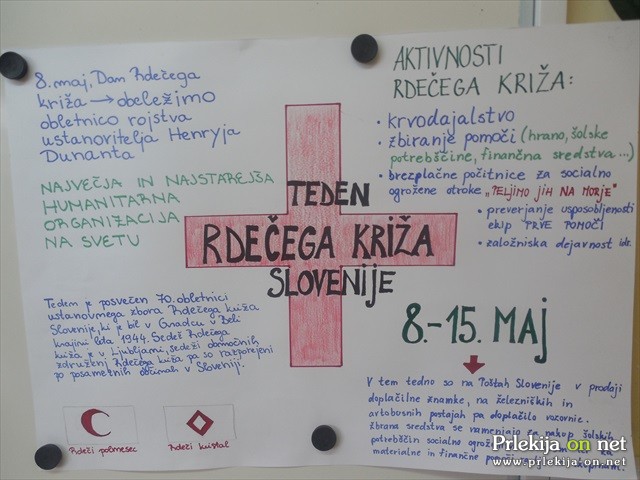 8. maj, Dan Rdečega
križa → obeležimo
obletnico rojstva
ustanovitelja Henryja
Dunanta
NAJVEČJA IN NAJSTAREJŠA
HUMANITARNA
ORGANIZACIJA
NA SVETU
TEDEN
RDEČEGA KRIŽA
SLOVENIJE
AKTIVNOSTI
RDEČEGA KRIŽA:
• krvodajalstvo
• zbiranje pomoči (hrano, šolske
potrebščine, finančna sredstva...)
• brezplačne počitnice za socialno
ogrožene otroke "PELJIMO JIH NA MORJE"
• preverjanje usposobljenosti
ekip PRVE POMOČI
• založniska dejavnost itd.
Teden je posvečen 70. obletnici
ustanovnega zbora Rdečega križa
Slovenije, ki je bil v Gradcu v Beli
krajini leta 1944. Sedež Rdečega
križa je v Ljubljani, sedeži območnih
združenj Rdečega križa pa so razporejeni
po posameznih občinah v Sloveniji.
Rdeči polmesec
Rdeči kristal
8.-15. MAJ
V tem tednu so na Poštah Slovenije v prodaji
doplačilne znamke, na železniških in
avtobusnih postajah pa doplačilo vozovnic.
Zbrana sredstva se namenjajo za nakup šolskih
potrebščin socialno
materialne in finančne
Prlekija on net
www.prlekija-on.net